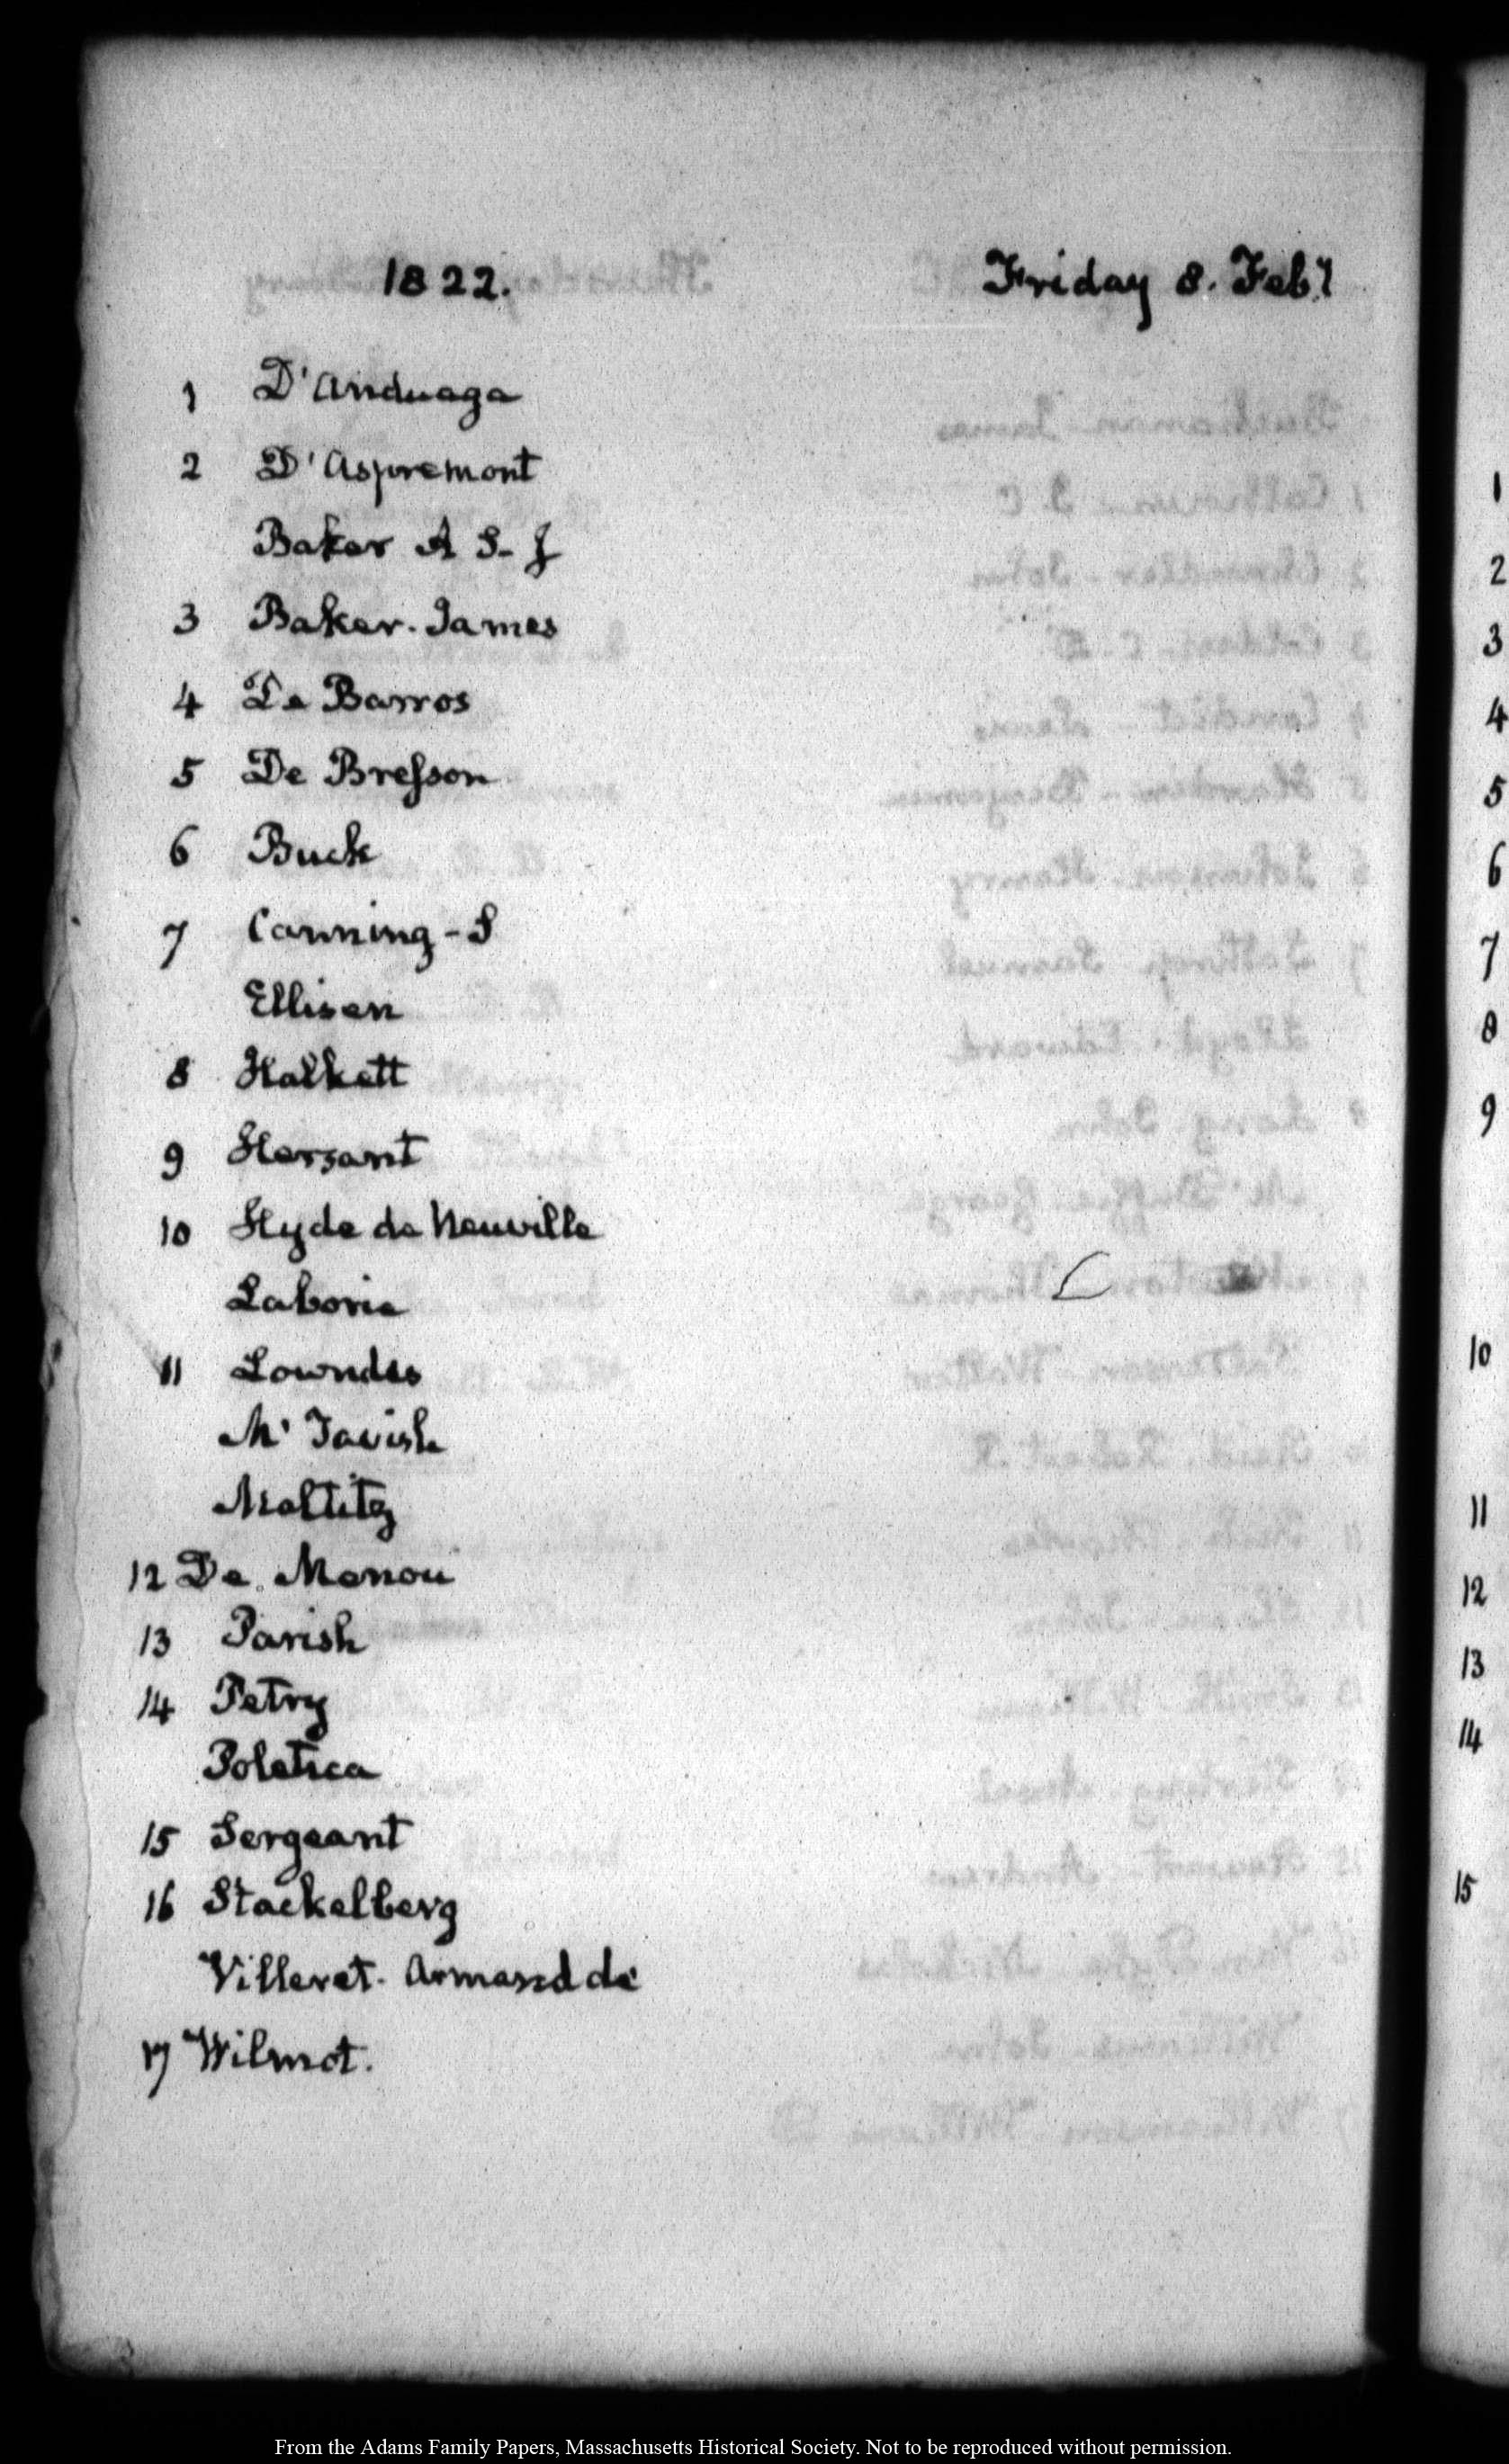 1822. Friday 8. Feby
1 D'Anduaga
2 D'Aspremont
Baker A S- J
3 Baker. James
4 De Barros
5 De Bresson
6 Buck
7 Canning - S
Ellisen
8 Halkett
9 Hersant
10 Hyde de Neuville
Laborie
11 Lowndes
Mc Tavish
Maltitz
12 De Menou
13 Parish
14 Petry
Poletica
15 Sergeant
16 Stackelberg
Villeret. Armand de
17 Wilmot.
1
2
3
4
5
6
7
8
9
10
11
12
13
14
15
From the Adams Family Papers, Massachusetts Historical Society. Not to be reproduced without permission.